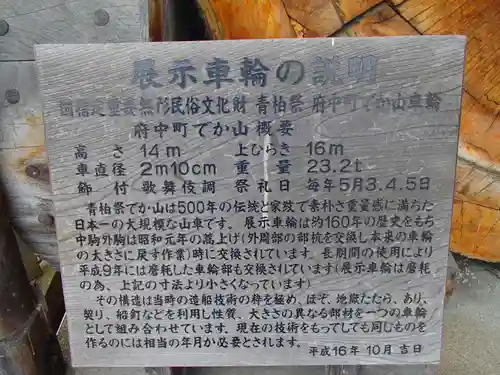 展示車輪の説明
国指定重要無形民俗文化財 青柏祭 府中町でか山車輪
府中町でか山 概要
高さ 14m 上ひらき 16m
車直径 2m10cm 重量 23.2t
飾付 歌舞伎調 祭礼日 毎年5月3.4.5日
青柏祭でか山は500年の伝統と家紋で素朴さ重量感に満ちた
日本一の大規模な山車です。展示車輪は約160年の歴史をもち
中駒外駒は昭和元年の嵩上げ(外周部の部杭を交換し本来の車輪
の大きさに戻す作業)されています。長期間の使用により
平成9年には磨耗した車輪部も交換されています(展示車輪は磨耗
の為、上記の寸法より小さくなっています)
その構造は当時の造船技術の粋を極め、ほぞ、地獄たたら、あり、
契り、船釘などを利用し性質、大きさの異なる部材を一つの車輪
として組み合わせています。現在の技術をもってしても同じものを
作るのには相当の年月が必要とされます。
平成16年 10月 吉日